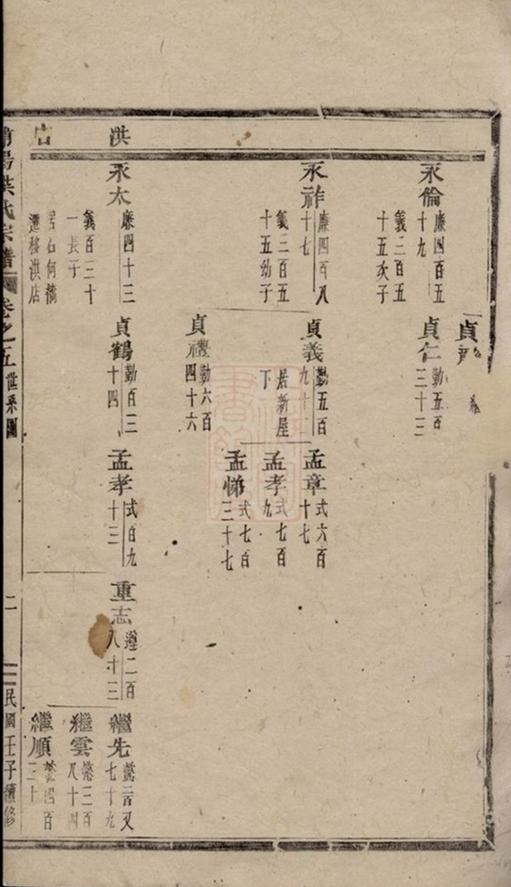 洪店
永倫
廉四百五
十九
義三百五
十五次子
貞仁
勤五百
三十三
永祚
廉四百八
十七
義三百五
十五幼子
貞義
勤五百
九十
居新屋
下
孟章
式六百
十七
孟孝
式七百
九
孟悌
式七百
三十七
貞禮
勤六百
四十六
永太
廉四十三
義百二十
一長子
居石何橋
遷移洪店
貞鶴
勤百三
十四
孟孝
式百九
十三
重志
遵二百
八十三
繼先
七十九
繼雲
三百
八十四
繼順
四百
三十
氏宗譜
卷之五
世系圖
二
民國壬子續修